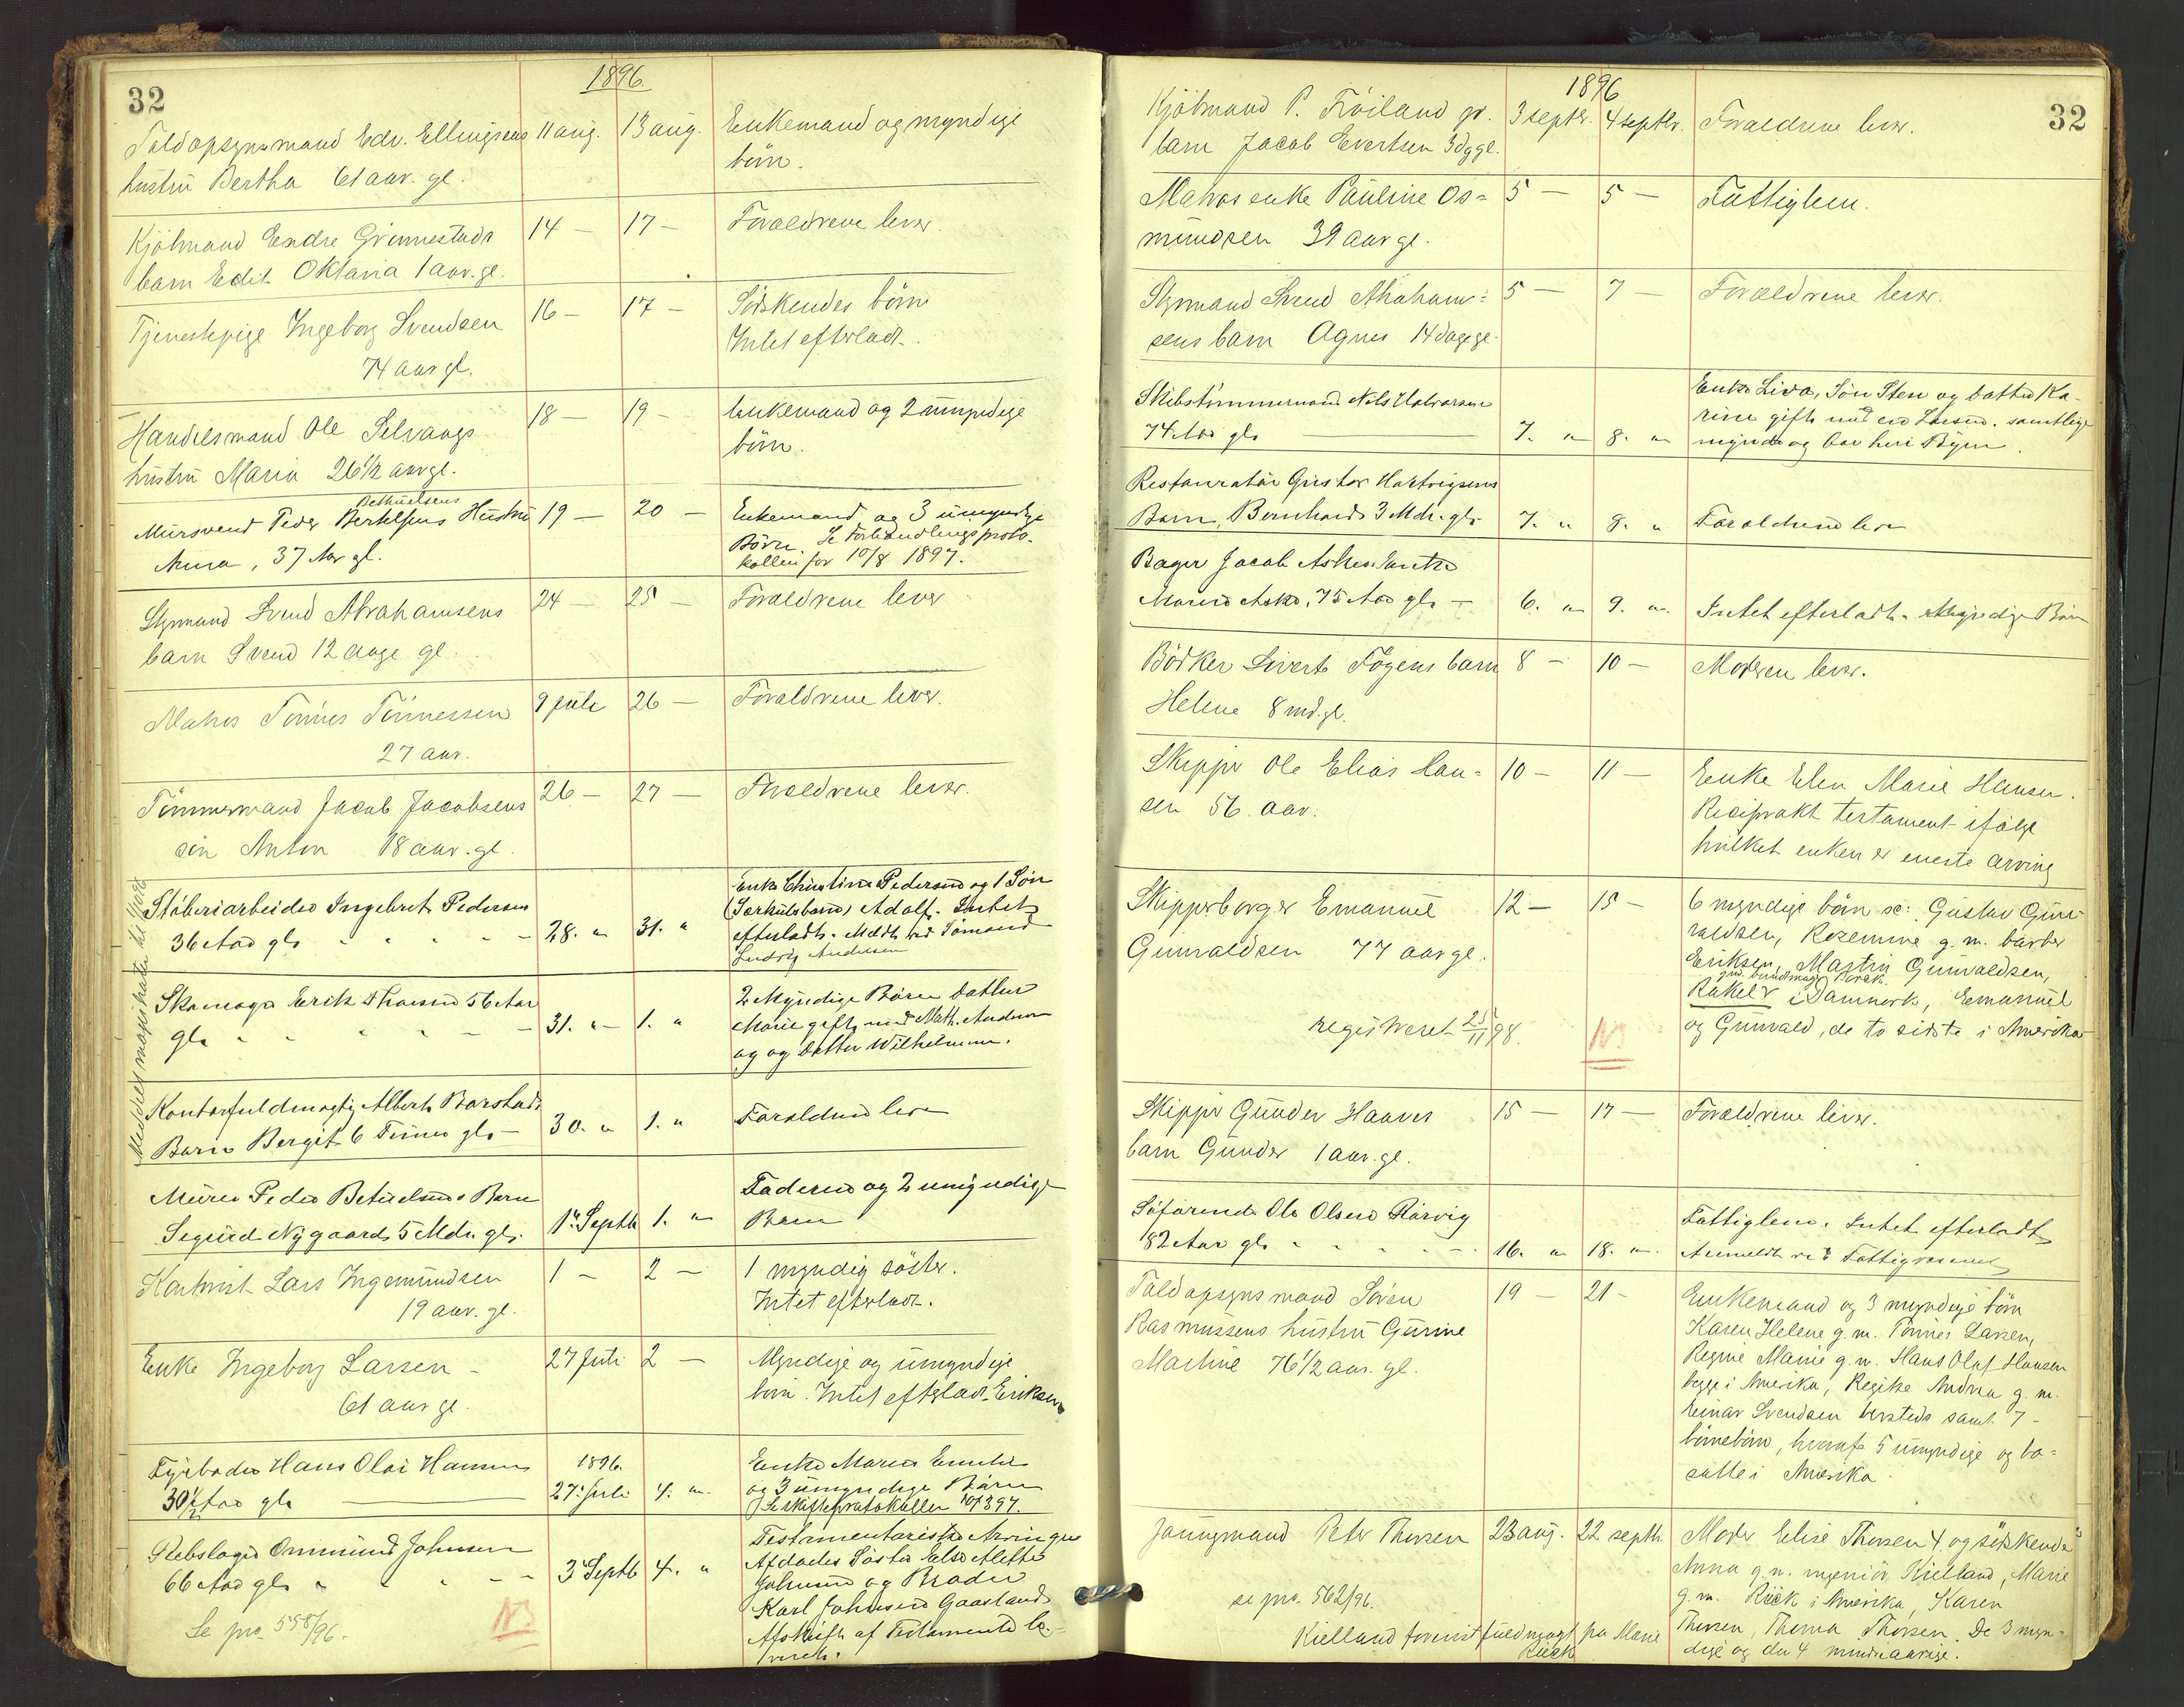 32
1896
Toldopsynsmand Edv. Ellingsens 11 aug. 13 aug. Enkemand og myndige
hustru Bertha 61 aar. gl. börn.
Kjöbmand Endre Grimnestads 14 — 17 — Forældrene lever.
barn Edit Oktavia 1 aar. gl.
Tjenestepige Ingeborg Svendsen 16 — 17 — Söskendes börn
74 aar gl. Intet efterladt.
Handelsmand Ole Selvaags 18 — 19 — Enkemand og 2 umyndige
hustru Maria 26 1/2 aar gl. börn.
Bethuelsens
Mursvend Peder Bertelsens Hustru 19 — 20 — Enkemand og 3 umyndige
Anna, 37 Aar gl. Börn. Se Forhandlingsproto-
kollen for 10/8 1897.
Styrmand Svend Abrahamsens 24 — 25 — Forældrene lever
barn Svend 12 dage gl.
Matros Tönnes Tönnessen 9 juli 26 — Forældrene lever.
27 aar.
Tömmermand Jacob Jacobsens 26 — 27 — Forældrene lever.
sön Anton 18 aar. gl.
Meddelt magistraten
Stöberiarbeider Ingebret Pedersen Enke Christine Pedersen og 1 Sön
36 Aar gl. 28. " 31. " Adolf. Intet
efterladt. Meldt ved Sömand
Ludvig Andersen
Skomager Erik 56 Aar 2 Myndige Börn datter
gl. 31. " 1. " Marie gift med Math. Andersen
og Datter Wilhelmine.
Kontorfuldmægtig Albert Barstads
Barn Bergit 6 Timer gl. 30. " 1. " Forældrene lever
Murer Peder Betuelsens Barn Faderen og 2 umyndige
Sigurd Nygaard 5 Mdr. gl. 1. Septb 1. " Börn
Kontorist Lars Ingemundsen 1 — 2 — 1 myndig söster.
19 aar. gl. Intet efterladt.
Enke Ingeborg Larsen 27 Juli 2 — Myndige og umyndige
61 aar gl. börn. Intet efterladt. Eriksen
Fyrböder Hans Olai Hansen 1896. Enke Maria Emilie
30 1/2 Aar gl. 27. Juli 4. " og 3 umyndige Börn
Se skifteprotokollen
Rebslager Ommund Johnsen 3 Septb 4. " Testamentariske Arvinger
66 Aar gl. Afdödes Söster Else Malene
Johnsen og Broder
Karl Johnsen Gaasland
Afskrift af Testamente le-
Se pro. 558/96. NB veret.
1896
32
Kjöbmand P. Fröiland gr. 3 septbr. 4 septbr. Forældrene lever.
barn Jacob Evertsen 3 dg gl.
Matros enke Pauline Os= 5 — 5 — Fattiglem.
mundsen 39 aar gl.
Styrmand Svend Abraham= 5 — 7 — Forældrene lever.
sens barn Agnes 14 dage gl.
Skibstömmermand Nils Halvorsen Enke Liva, Sön Sten og datter Ka-
74 Aar gl. 7. " 8. " rine gift med Larsen. samtlige
myndige og bor her i Byen.
Restauratör Gustav Hartvigsens
Barn Bernhard 3 Mdr. gl. 7. " 8. " Forældrene lever
Bager Jacob Askes Enke
Maren Aske, 75 Aar gl. — 6. " 9. " Intet efterladt. Myndige Börn
Bödker Sivert Fögens barn 8 — 10 — Moderen lever.
Helene 8 md. gl.
Skipper Ole Elias Han= 10 — 11 — Enke Elen Marie Hansen.
sen 56. aar. Reciprokt testament ifölge
hvilket enken er eneste arving
Skipperborger Emanuel 12 — 15 — 6 myndige börn sc: Gustav Gun-
Gunvaldsen 77 aar gl. valdsen, Rozemine g. m. barber
Eriksen, Martin Gunvaldsen,
Rakel i Danmark, Emanuel
registreret 25/11 98. NB og Gunvald, de to sidste i Amerika
Skipper Gunder Haaves 15 — 17 — Forældrene lever.
barn Gunder 1 aar. gl.
Söfarende Ole Olsen Rörvig Fattiglem. Intet efterladt
82 Aar gl. 16. " 18. " Anmeldt ved Fattigvæsenet
Toldopsynsmand Sören 19 — 21 — Enkemand og 3 myndige börn
Rasmussens hustru Gurine Karen Helene g. m. Tönnes Larsen,
Martine 76 1/2 aar. gl. Regine Marie g. m. Hans Olaf Hansen
begge i Amerika, Regitze Andrea g. m.
Einar Svendsen hersteds samt 7
börnebörn, hvoraf 5 umyndige og bo=
satte i Amerika.
Jaungmand Peter Thorsen 23 aug. 22 septb. Moder Elise Thorsen 4. og söskende
Anna g. m. ingeniör Kielland, Marie
se pro. 562/96. g. m. Rück i Amerika, Karen
Kielland forevist fuldmagt fra Marie Thorsen, Thoma Thorsen. De 3 myn=
Rück dige og den 4 mindreaarige.